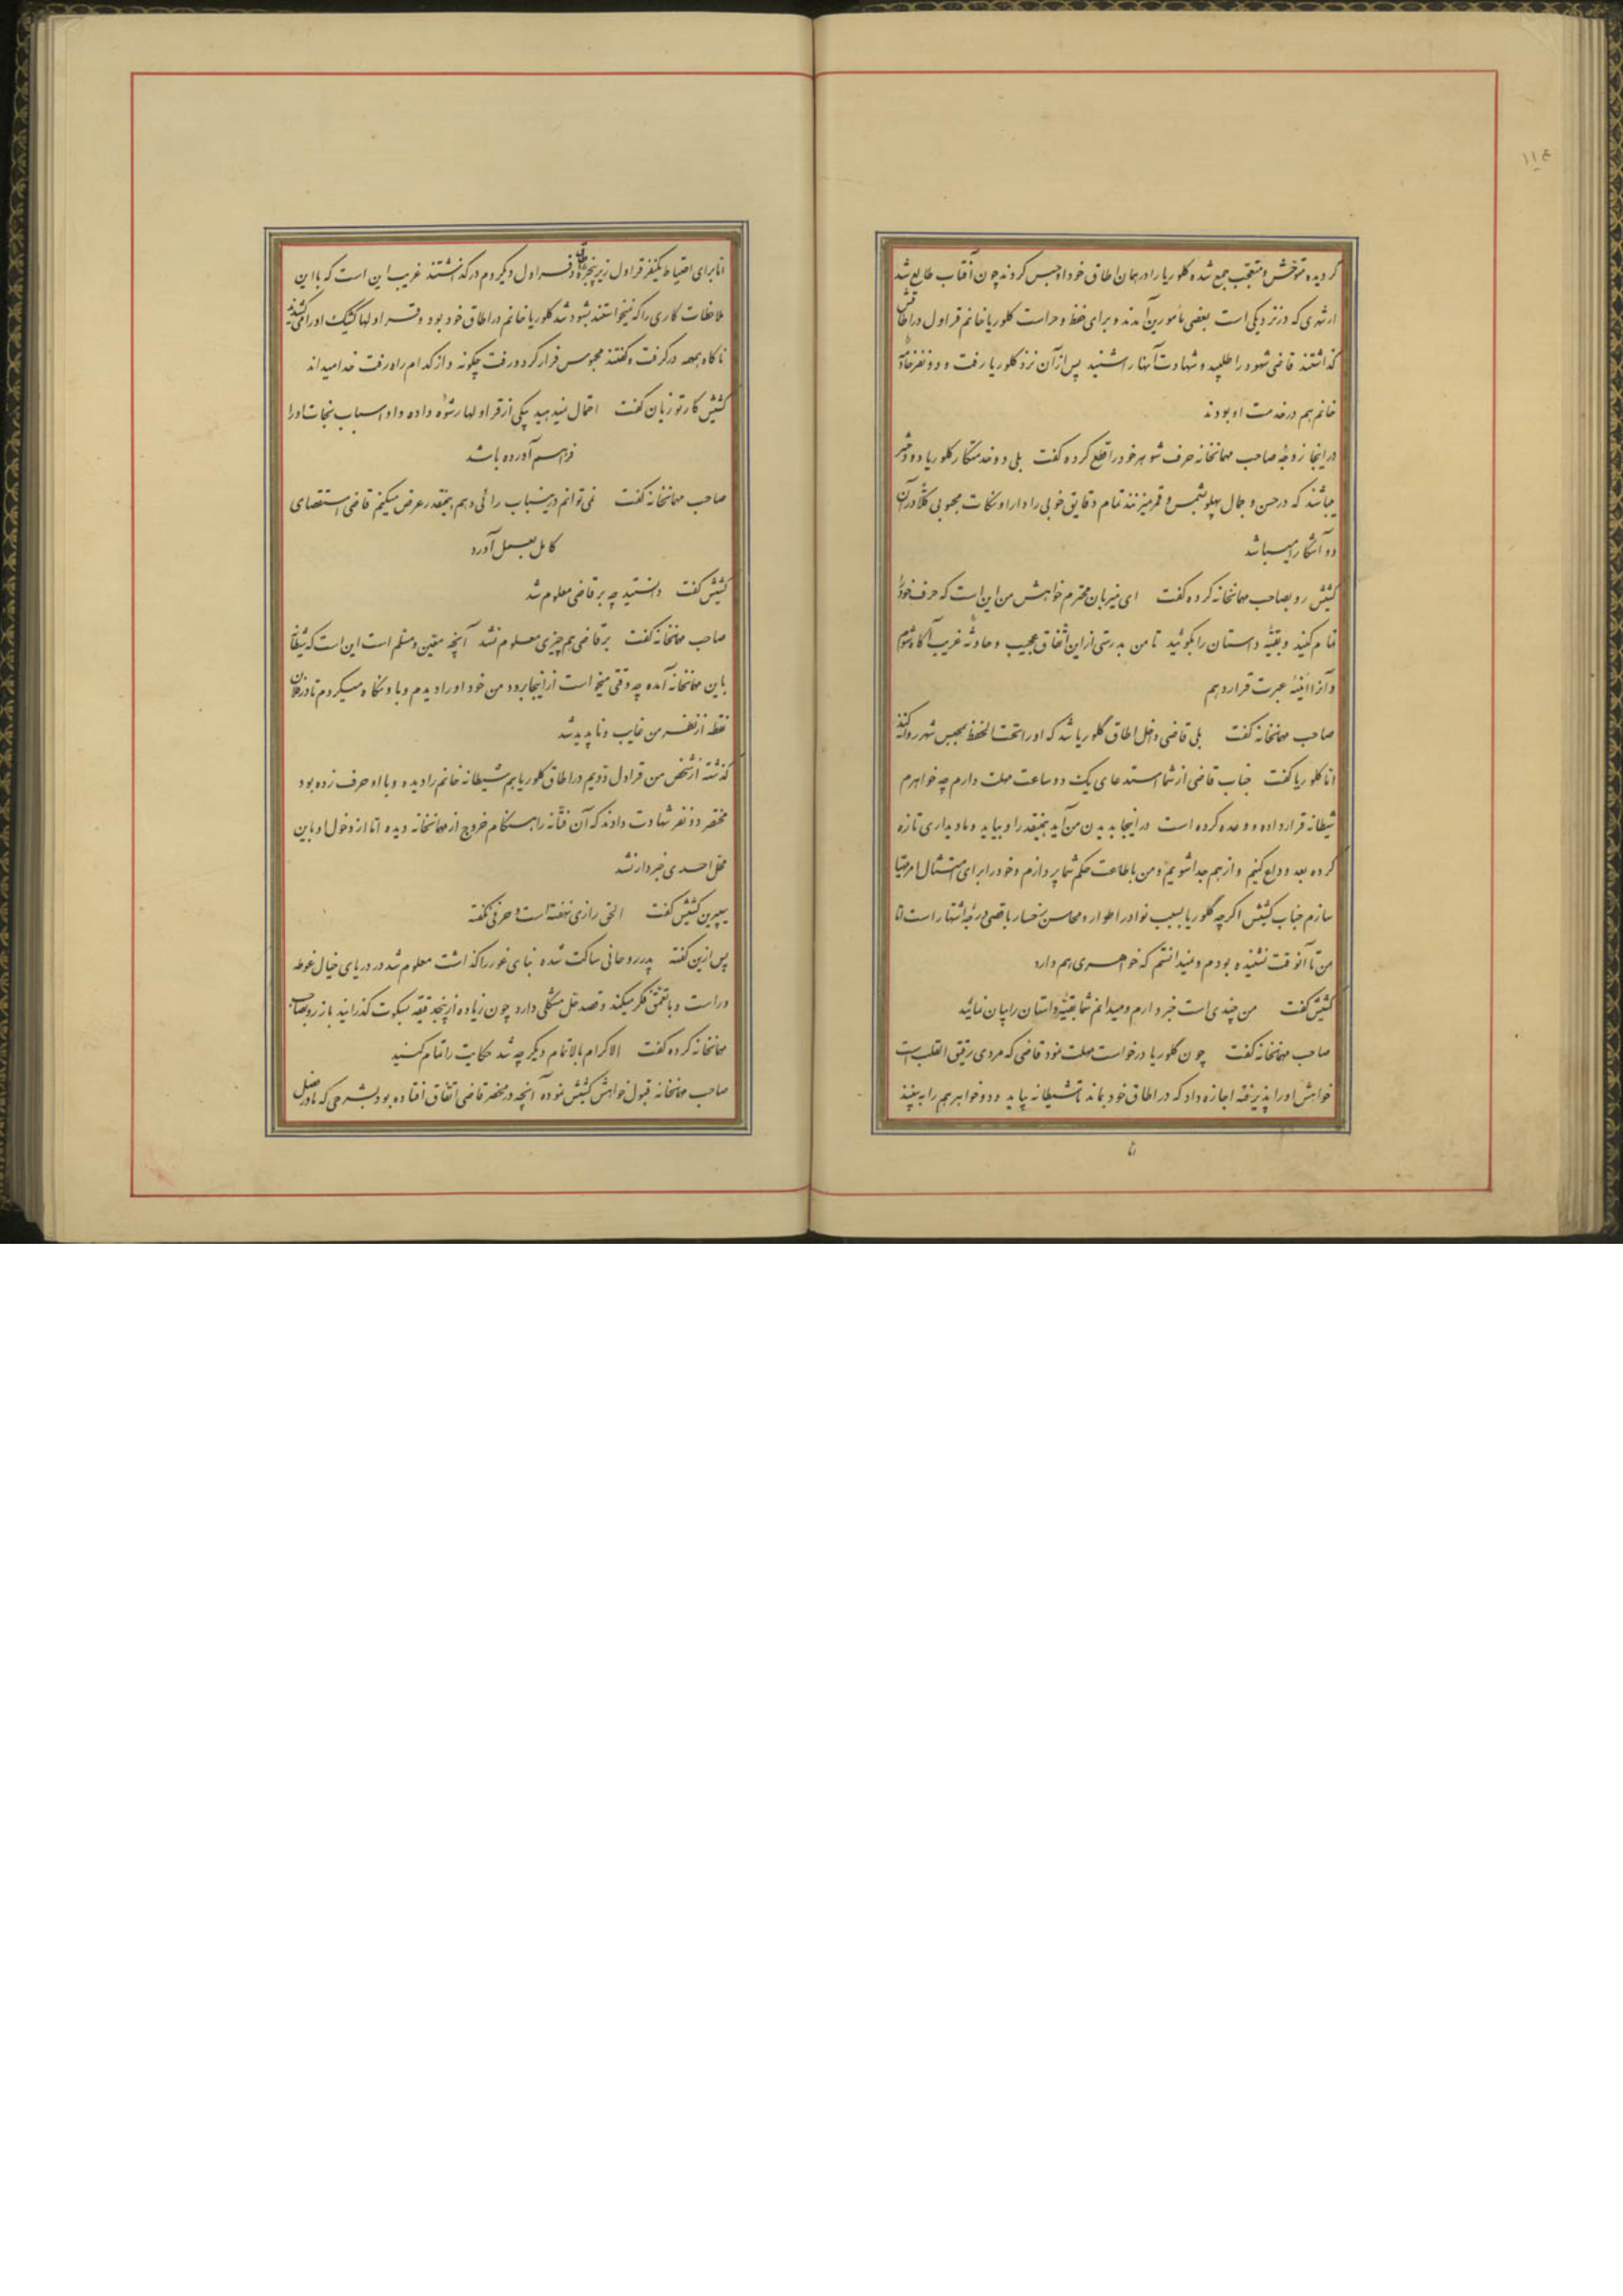 ۱۱۴
گردیده متوحش و متعجب جمع شده کلوریا را در همان اطاق خود او حبس کردند چون آفتاب طالع شد
از شهری که در نزدیکی است بعضی مأمورین آمدند و برای حفظ و حراست کلوریا خانم قراول در اطاقش
گذاشتند قاضی شهود را طلبید و شهادت آنها را شنید پس از آن نزد کلوریا رفت و دو نفر خادمهٔ
خانم هم در خدمت او بودند
در اینجا زوجهٔ صاحب مهمانخانه حرف شوهر خود را قطع کرده گفت بلی دو خدمتکار کلوریا دو دختر
میباشند که در حسن و جمال پهلو بشمس و قمر میزنند تمام دقایق خوبی را دارا و نکات محبوبی کلاً در آن
دو آشکارا میباشد
کشیش رو بصاحب مهمانخانه کرده گفت ای میزبان محترم خواهش من این است که حرف خود را
تمام کنید و بقیهٔ داستان را بگوئید تا من بدرستی از این اتفاق عجیب و حادثهٔ غریب آگاه شوم
و آنرا آئینهٔ عبرت قرار دهم
صاحب مهمانخانه گفت بلی قاضی داخل اطاق گلوریا شد که او را تحت الحفظ بمحبس شهر روانه کند
اما کلوریا گفت جناب قاضی از شما استدعای یک دو ساعت مهلت دارم چه خواهرم
شیطانه قرار داده و وعده کرده است در اینجا بدیدن من آید همینقدر او بیاید و ما دیداری تازه
کرده بعد وداع کنیم و از هم جدا شویم و من باطاعت حکم شما پردازم و خود را برای امتثال امر مهیا
سازم جناب کشیش اگرچه گلوریا بسبب نوادر اطوار و محاسن رخسار باقصی درجه اشتهار است اما
من تا آنوقت نشنیده بودم و نمیدانستم که خواهری هم دارد
کشیش گفت من چندی است خبر دارم و میدانم شما بقیهٔ داستان را بپایان نمائید
صاحب مهمانخانه گفت چون گلوریا درخواست مهلت نمود قاضی که مردی رقیق القلب است
خواهش او را پذیرفته اجازه داد که در اطاق خود بماند تا شیطانه بیاید و دو خواهر هم را به بینند
اما
اما برای احتیاط یکنفر قراول زیر پنجره اطاق و قراول دیگر دم در گذاشتند غریب این است که با این
ملاحظات کاری را که نمیخواستند بشود شد کلوریا خانم در اطاق خود بود و قراولها کشیک او را می کشیدند
ناگاه همهمه در گرفت و گفتند محبوس فرار کرد و رفت چگونه و از کدام راه رفت خدا میداند
کشیش کارتوزیان گفت احتمال نمیدهید یکی از قراولها رشوه داده و او اسباب نجات او را
فراهم آورده باشد
صاحب مهمانخانه گفت نمی توانم در ینباب رائی دهم همینقدر عرض میکنم قاضی استقصای
کامل بعمل آورد
کشیش گفت دانستید چه بر قاضی معلوم شد
صاحب مهمانخانه گفت بر قاضی هم چیزی معلوم نشد آنچه متیقن و مسلم است این است که شیطانه
باین مهمانخانه آمده چه وقتی میخواست از اینجا برود من خود او را دیدم و باو نگاه میکردم تا در فلان
نقطه از نظر من غایب و ناپدید شد
گذشته از شخص من قراول دویم در اطاق کلوریا هم شیطانه خانم را دیده و با او حرف زده بود
مختصر دو نفر شهادت دادند که آن فتانه را هنگام خروج از مهمانخانه دیده اما از دخول او باین
محل احدی خبردار نشد
پیرین کشیش گفت الحق رازی نهفته است و حرفی نگفته
پس ازین گفته پدر روحانی ساکت شده بنای غور را گذاشت معلوم شد در دریای خیال غوطه
ور است و با تعمق فکر میکند و قصد حل مشکلی دارد چون زیاده از پنجدقیقه بسکوت گذرانید باز رو بصاحب
مهمانخانه کرده گفت الاکرام بالاتمام دیگر چه شد حکایت را تمام کنید
صاحب مهمانخانه قبول خواهش کشیش نموده آنچه در محضر قاضی اتفاق افتاده بود بشرحی که ما در فصل